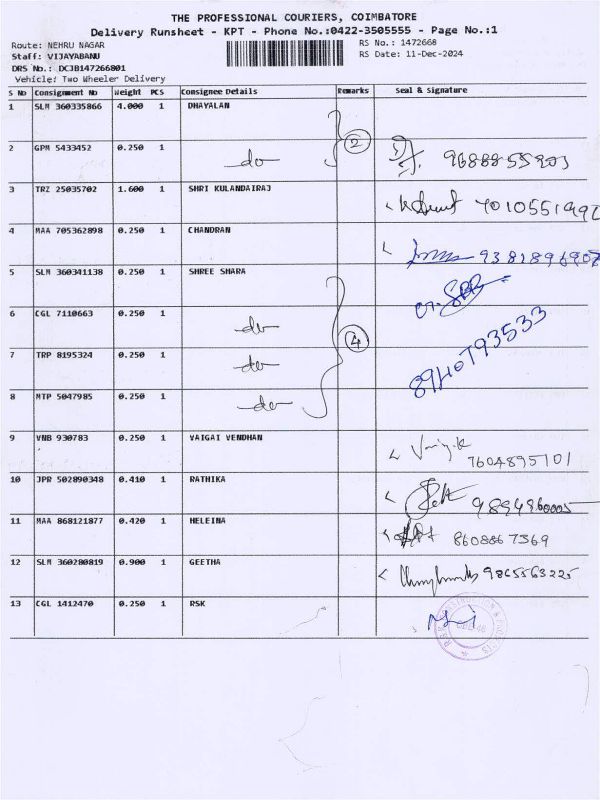 THE PROFESSIONAL COURIERS, COIMBATORE
Delivery Runsheet - KPT - Phone No.:0422-3505555 - Page No.:1
Route: NEHRU NAGAR RS No.: 1472668
Staff: VIJAYABANU RS Date: 11-Dec-2024
DRS No.: DCJB147266801
Vehicle: Two Wheeler Delivery
S No Consignment No Weight PCS Consignee Details Remarks Seal & Signature
1 SLM 360335866 4.000 1 DHAYALAN
2 GPM 5433452 0.250 1 do 2 9688855903
3 TRZ 25035702 1.600 1 SHRI KULANDAIRAJ
4 MAA 705362898 0.250 1 CHANDRAN 9381896902
5 SLM 360341138 0.250 1 SHREE SHARA
6 CGL 7110663 0.250 1 do 4
7 TRP 8195324 0.250 1 do
8 MTP 5047985 0.250 1 do
9 VNB 930783 0.250 1 VAIGAI VENDHAN 7604895101
10 JPR 502890348 0.410 1 RATHIKA 9894960005
11 MAA 868121877 0.420 1 HELEINA 8608867369
12 SLM 360280819 0.900 1 GEETHA 9865563225
13 CGL 1412470 0.250 1 RSK